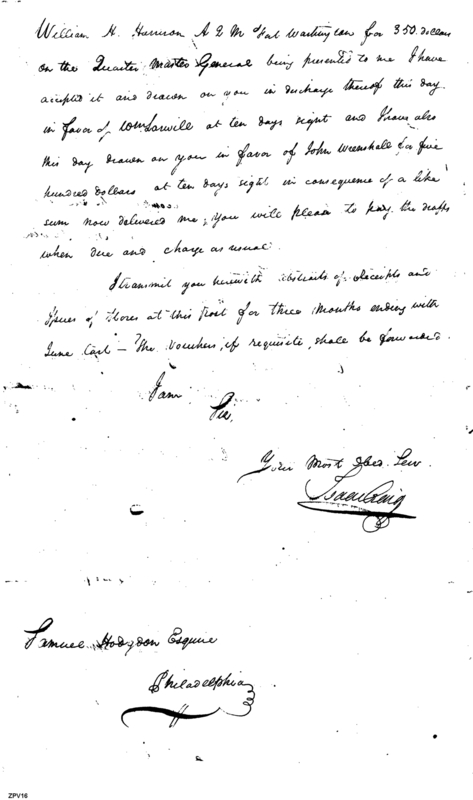 William H. Harrison A Q M Fort Washington for 350 dollars
on the Quarter Master General being presented to me I have
accepted it and drawn on you in discharge thereof this day
in favor of Wm at ten days sight and I have also
this day drawn on you in favor of John Wrenshall for five
hundred dollars at ten days sight in consequence of a like
sum now delivered me, you will please to pay the drafts
when due and charge as usual.
I transmit you herewith abstracts of Receipts and
Issues of Stores at this Post for three Months ending with
June last — The Vouchers, if requisite, shall be forwarded.
I am
Sir,
Your Most Obed. Serv.
Isaac Craig
Samuel Hodgdon Esquire
Philadelphia
ZPV16